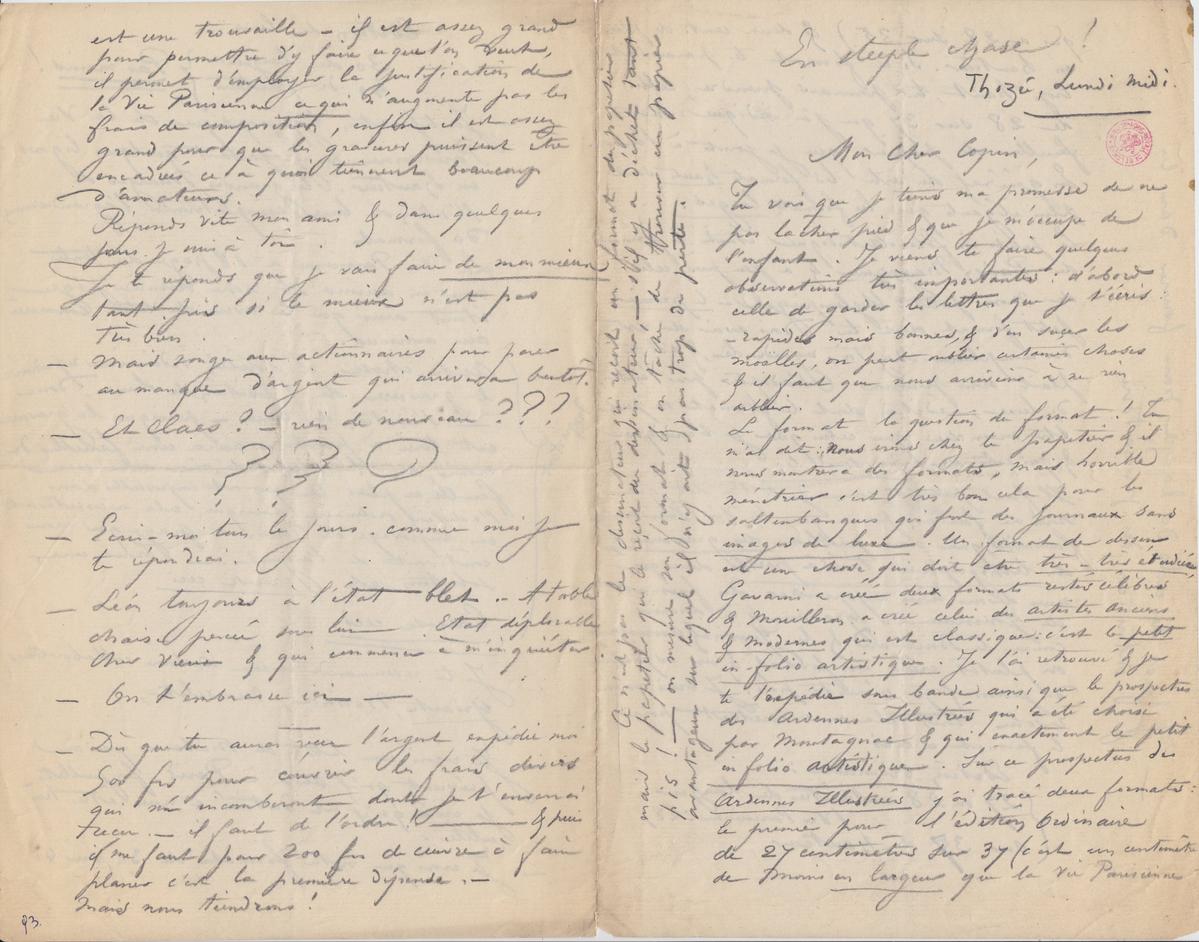 En steeple chase !
Thozée, Lundi midi.
Mon Cher Copin,
Tu vois que je tiens ma promesse de ne
pas lâcher pied & que je m'occupe de
l'enfant. Je viens te faire quelques
observations très importantes : d'abord
celle de garder les lettres que je t'écris :
– rapides mais bonnes, & d'en sucer les
moelles, on peut oublier certaines choses
& il faut que nous arrivions à ne rien
oublier.
Le format la question de format ! Tu
m'as dit : nous irons chez le papetier & il
nous montrera des formats, mais horrible
ménétrier c'est très bon cela pour les
saltimbanques qui font des journaux sans
images de luxe. Un format de dessin
est une chose qui doit être très – très étudiée,
Gavarni a créé deux formats restés célèbres
& Mouilleron a créé celui des artistes anciens
& modernes qui est classique : c'est le petit
in-folio artistique. Je l'ai retrouvé & je
te l'expédie sous bande ainsi que le prospectus
des Ardennes Illustrées qui a été choisi
par Montagnac & qui exactement le petit
in folio artistique. Sur ce prospectus des
Ardennes Illustrées j'ai tracé deux formats :
le premier pour l'édition Ordinaire
de 27 centimètres sur 37 (c'est un centimètre
de moins en largeur que la Vie Parisienne
Ce n'est pas le dessinateur qui reçoit un format du papetier
mais le papetier qui le reçoit du dessinateur, – s'il y a déchet tant
pis ! – on mesure son format & on tâche de trouver un papier
avantageux sur lequel il n'y aurait pas trop de perte.
est une trouvaille – il est assez grand
pour permettre d'y faire ce que l'on veut,
il permet d'employer la justification de
la Vie Parisienne ce qui n'augmente pas les
frais de composition, enfin il est assez
grand pour que les gravures puissent être
encadrées ce à quoi tiennent beaucoup
d'amateurs.
Réponds vite mon ami & dans quelques
jours je suis à toi.
Je te réponds que je vais faire de mon mieux
tant pis si le mieux n'est pas
très bien.
– Mais songe aux actionnaires pour parer
au manque d'argent qui arrivera bientôt.
– Et Claes ? – rien de nouveau ???
? ? ?
– Ecris-moi tous les jours. comme moi je
te répondrai.
– Léon toujours à l'état blet. – A table
chaise percée sous lui. Etat déplorable
cher vieux & qui commence à m'inquiéter
– On t'embrasse ici –
– Dès que tu auras reçu l'argent expédie moi
500 frs pour couvrir les frais divers
qui m'incomberont dont je t'enverrai
reçu. – il faut de l'ordre ! – & puis
il me faut pour 200 frs de cuivre à faire
planer c'est la première dépense. –
Mais nous tiendrons !
93.